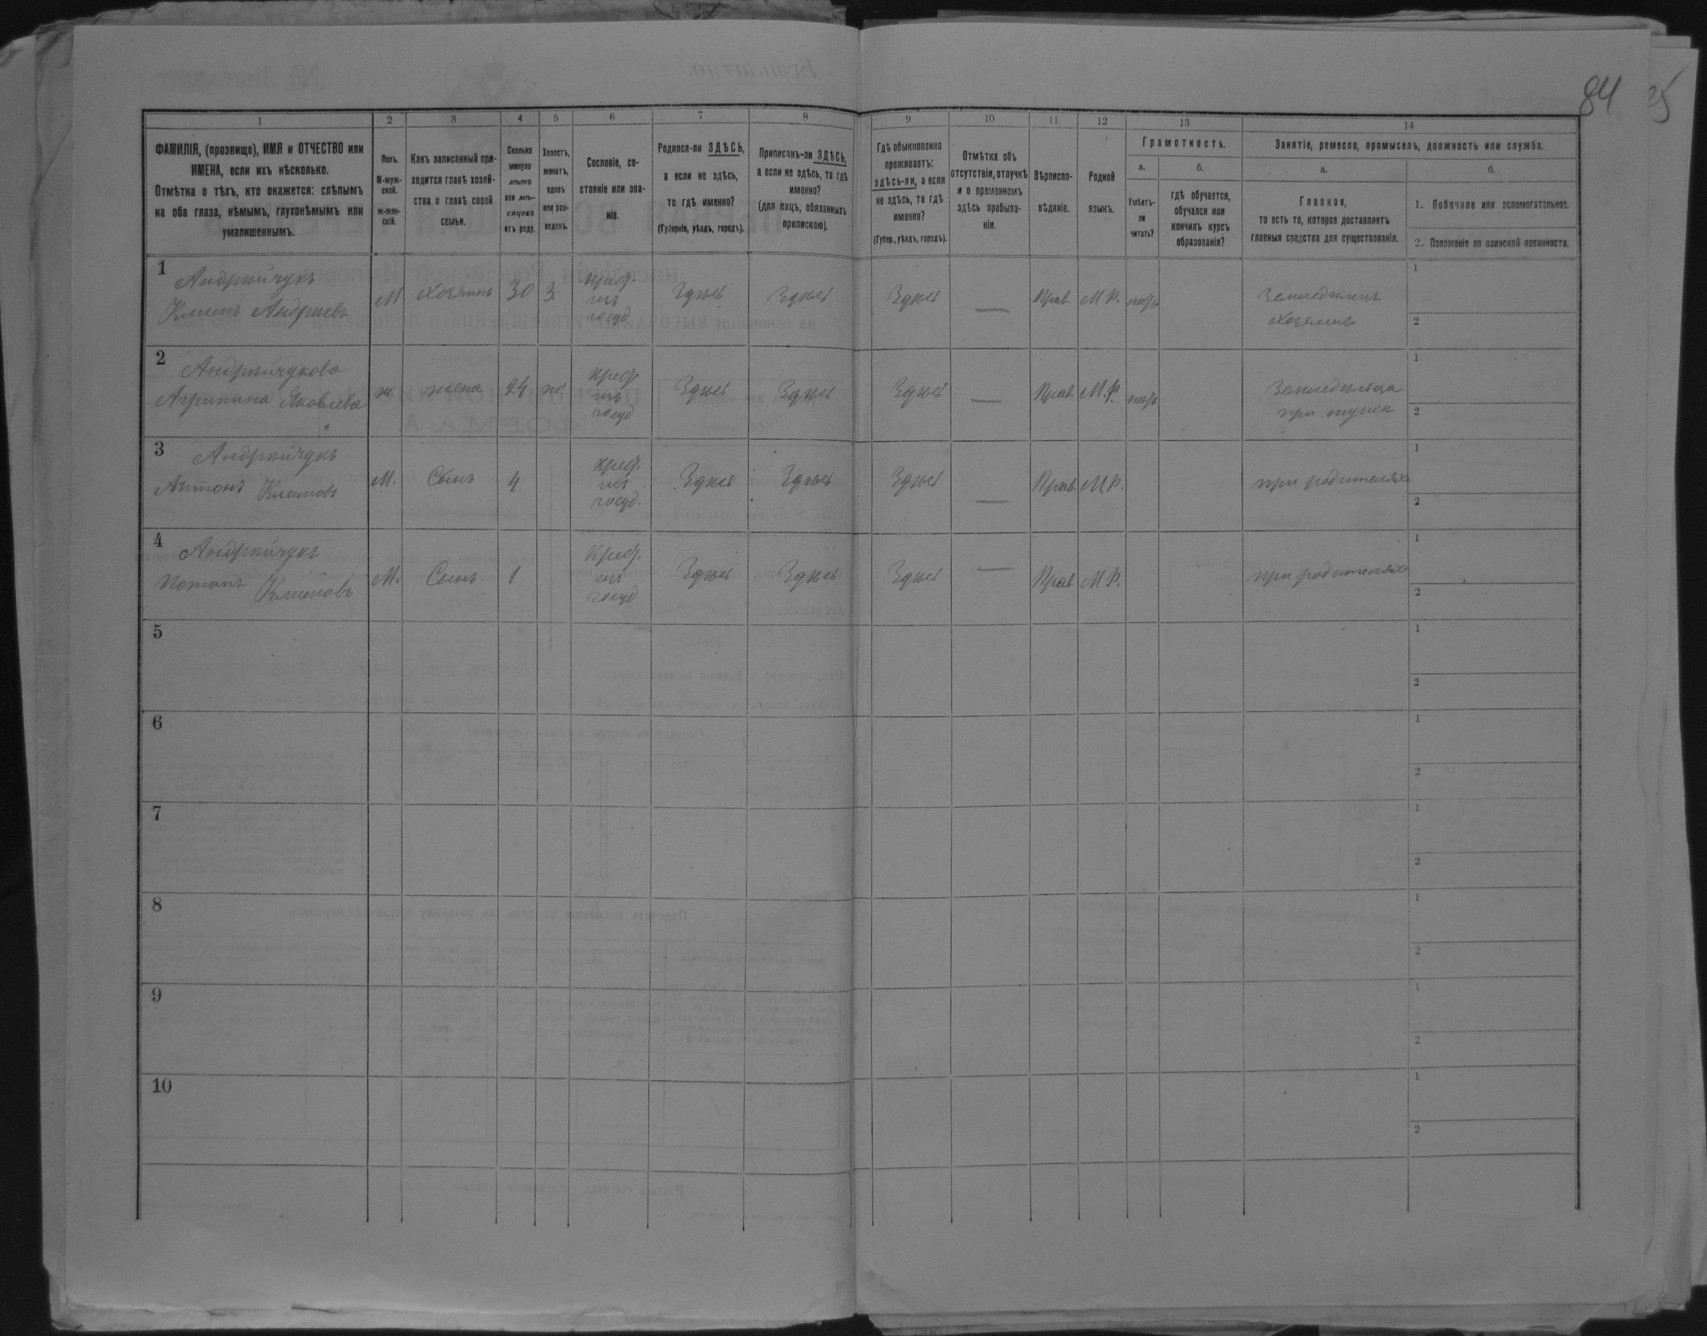 84
1 2 3 4 5 6 7 8 9 10 11 12 13 14
ФАМИЛІЯ, (прозвище), ИМЯ и ОТЧЕСТВО или
ИМЕНА, если ихъ нѣсколько.
Отмѣтка о тѣхъ, кто окажется: слѣпымъ
на оба глаза, нѣмымъ, глухонѣмымъ или
умалишеннымъ.
Полъ.
М-муж-
ской.
ж-жен-
скій.
Какъ записанный при-
ходится главѣ хозяй-
ства и главѣ своей
семьи.
Сколько
минуло
лѣтъ
или мѣ-
сяцевъ
отъ роду.
Холостъ,
женатъ,
вдовъ
или раз-
веденъ.
Сословіе, со-
стояніе или зва-
ніе.
Родился-ли ЗДѢСЬ,
а если не здѣсь,
то гдѣ именно?
(Губернія, уѣздъ, городъ).
Приписанъ-ли ЗДѢСЬ,
а если не здѣсь, то гдѣ
именно?
(для лицъ, обязанныхъ
припискою).
Гдѣ обыкновенно
проживаетъ:
здѣсь-ли, а если
не здѣсь, то гдѣ
именно?
(Губер., уѣздъ, городъ).
Отмѣтка объ
отсутствіи, отлучкѣ
и о временномъ
здѣсь пребыва-
ніи.
Вѣроиспо-
вѣданіе.
Родной
языкъ.
Грамотность.
а.
Умѣетъ-
ли
читать?
б.
гдѣ обучается,
обучался или
кончилъ курсъ
образованія?
Занятіе, ремесло, промыселъ, должность или служба.
а.
Главное,
то есть то, которое доставляетъ
главныя средства для существованія.
б.
1. Побочное или вспомогательное.
2. Положеніе по воинской повинности.
1
Андрійчукъ
Климъ Андреевъ
М Хозяинъ 30 Ж
крест.
изъ
госуд.
Здѣсь Здѣсь Здѣсь — Прав. М.Р. нѣтъ
Земледѣлецъ
хозяинъ
1
2
2
Андрійчукова
Агрипина Яковлева
ж жена 24 ж
крест.
изъ
госуд
Здѣсь Здѣсь Здѣсь — Прав. М.Р. нѣтъ
Земледѣлица
при мужѣ
1
2
3
Андрійчукъ
Антонъ Климовъ
М. Сынъ 4
крест.
изъ
госуд.
Здѣсь Здѣсь Здѣсь — Прав М.Р. при родителяхъ
1
2
4
Андрійчукъ
Потапъ Климовъ
М. Сынъ 1
крест.
изъ
госуд
Здѣсь Здѣсь Здѣсь — Прав М.Р. при родителяхъ
1
2
5
1
2
6
1
2
7
1
2
8
1
2
9
1
2
10
1
2